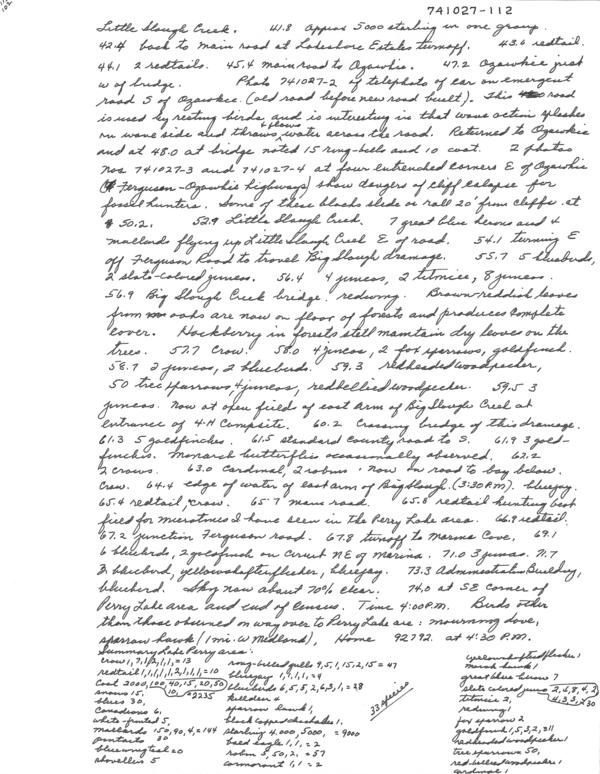 741027-112
Little Slough Creek. 41.8 approx 5000 starling in one group.
42.4 back to main road at Lakeshore Estates turnoff. 43.6 redtail.
44.1 2 redtails. 45.4 main road to Ozawkie. 47.2 Ozawkie just
W of bridge. Photo 741027-2 of telephoto of car on emergent
road S of Ozawkie. (old road before new road built). This road
is used by resting birds, and is interesting in that wave action splashes
on wave side and throws & flows water across the road. Returned to Ozawkie
and at 48.0 at bridge noted 15 ring-bells and 10 coot. 2 photos
nos 741027-3 and 741027-4 at four entrenched corners E of Ozawkie
(Ferguson-Ozawkie highways) show dangers of cliff colapse for
fossil hunters. Some of these blocks slide or roll 20' from cliffs at
50.2. 52.9 Little Slough Creek. 7 great blue herons and 4
mallard flying up Little Slough Creek E of road. 54.1 turning E
off Ferguson Road to travel Big Slough drainage. 55.7 5 bluebirds,
2 slate-colored juncos. 56.4 4 juncos, 2 titmice, 8 juncos.
56.9 Big Slough Creek bridge. redwing. Brown-reddish leaves
from oaks are now on floor of forests and produces complete
cover. Hackberry in forests still maintain dry leaves on the
trees. 57.7 Crow. 58.0 4 juncos, 2 fox sparrows, goldfinch.
58.7 2 juncos, 2 bluebirds. 59.3 redheaded woodpecker,
50 tree sparrows, 4 juncos, redbellied woodpecker. 59.5 3
juncos. Now at open field of east arm of Big Slough Creek at
entrance of 4-H Campsite. 60.2 Crossing bridge of this drainage.
61.3 5 goldfinches. 61.5 standard county road to S. 61.9 3 gold-
finches. Monarch butterflies occasionally observed. 62.2
2 crows. 63.0 Cardinal, 2 robins. Now on road to bay below.
Crow. 64.4 edge of water of east arm of Big Slough. (3:30 PM). bluejay.
65.4 redtail, crow. 65.7 main road. 65.8 redtail hunting best
field for microtines I have seen in the Perry Lake area. 66.9 redtail.
67.2 junction Ferguson road. 67.8 turnoff to Marina Cove. 69.1
6 bluebirds, 2 goldfinch on Circuit NE of Marina. 71.0 3 juncos.
bluebird, yellowshafted flicker, bluejay. 73.3 Administration Building,
bluebird. Sky now about 70% clear. 74.0 at SE corner of
Perry Lake area and end of census. Time 4:00 P.M. Birds other
than those observed on way over to Perry Lake are: mourning dove,
sparrow hawk (1 mi. W Midland), Home 92792. at 4:30 P.M.
Summary Lake Perry area:
crow 1,7,1,2,1,1,=13
redtail 1,1,1,1,1,2,1,1,1=10
Coot 2000,100,40,15,20,50
10, =2235
snows 15,
blues 30,
Canadians 6,
white-fronted 5,
mallards 150,90,4,=244
pintails 30
bluewing teal 20
shovellers 5
ring-billed gulls 9,5,1,15,2,15=47
bluejay 1,9,1,1,=4
bluebirds 6,5,5,2,6,3,1,=28
killdeer 4
sparrow hawk 1,
black capped chickadee 1.
starling 4,000, 5000, =9000
bald eagle 1,1,=2
robin 5,50,2,=57
cormorant 1,1=2
33 species
yellowshafted flicker 1
marsh hawk 1
great blue heron 7
slate colored junco 2,4,8,4,2
4,3,3,=30
titmice 2,
redwing 1
fox sparrow 2
goldfinch 1,5,3,2,=11
redheaded woodpecker 1
tree sparrows 50,
red-bellied woodpecker 1
cardinal 1